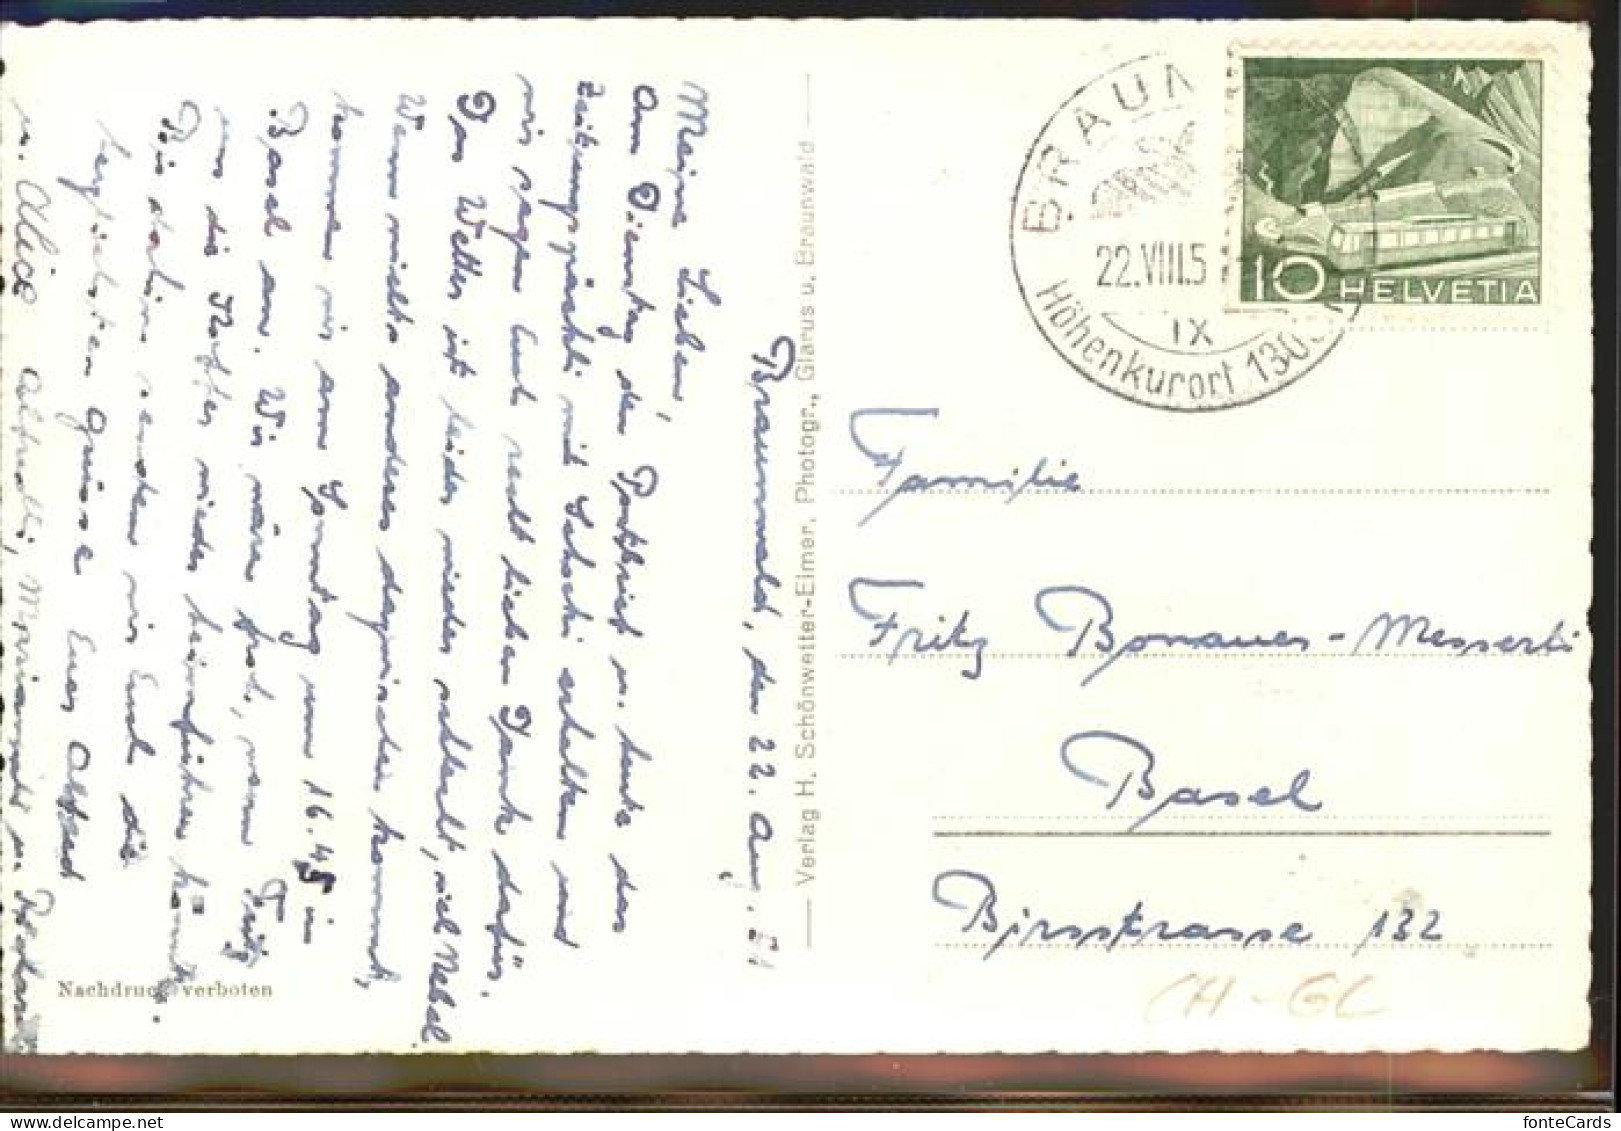 Braunwald, den 22. Aug. 51
Meine Lieben,
Am Dienstag den Postbrief u. heute das
Zeitungspäckli mit Schoki erhalten und
wir sagen Euch recht lieben Dank dafür.
Das Wetter ist leider wieder schlecht, viel Nebel
Wenn nichts anderes dazwischen kommt,
kommen wir am Sonntag um 16.45 in
Basel an. Wir wären froh, wenn Fritz
uns die Koffer wieder heimführen könnte.
Bis dahin senden wir Euch die
herzlichsten Grüsse Euer Alfred
u. Alice
Nachdruck verboten
Verlag H. Schönwetter-Elmer, Photogr., Glarus u. Braunwald
BRAUN
22.VIII.5
IX
Höhenkurort 130
10 HELVETIA
Familie
Fritz Bonauer-Messerli
Basel
Birsstrasse 132
CH-GL
fonteCards